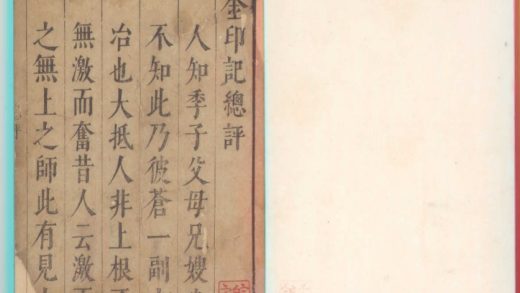 金印記總評
人知季子父母兄嫂
不知此乃彼蒼一副
冶也大抵人非上根
無激而奮昔人云激
之無上之師此有見